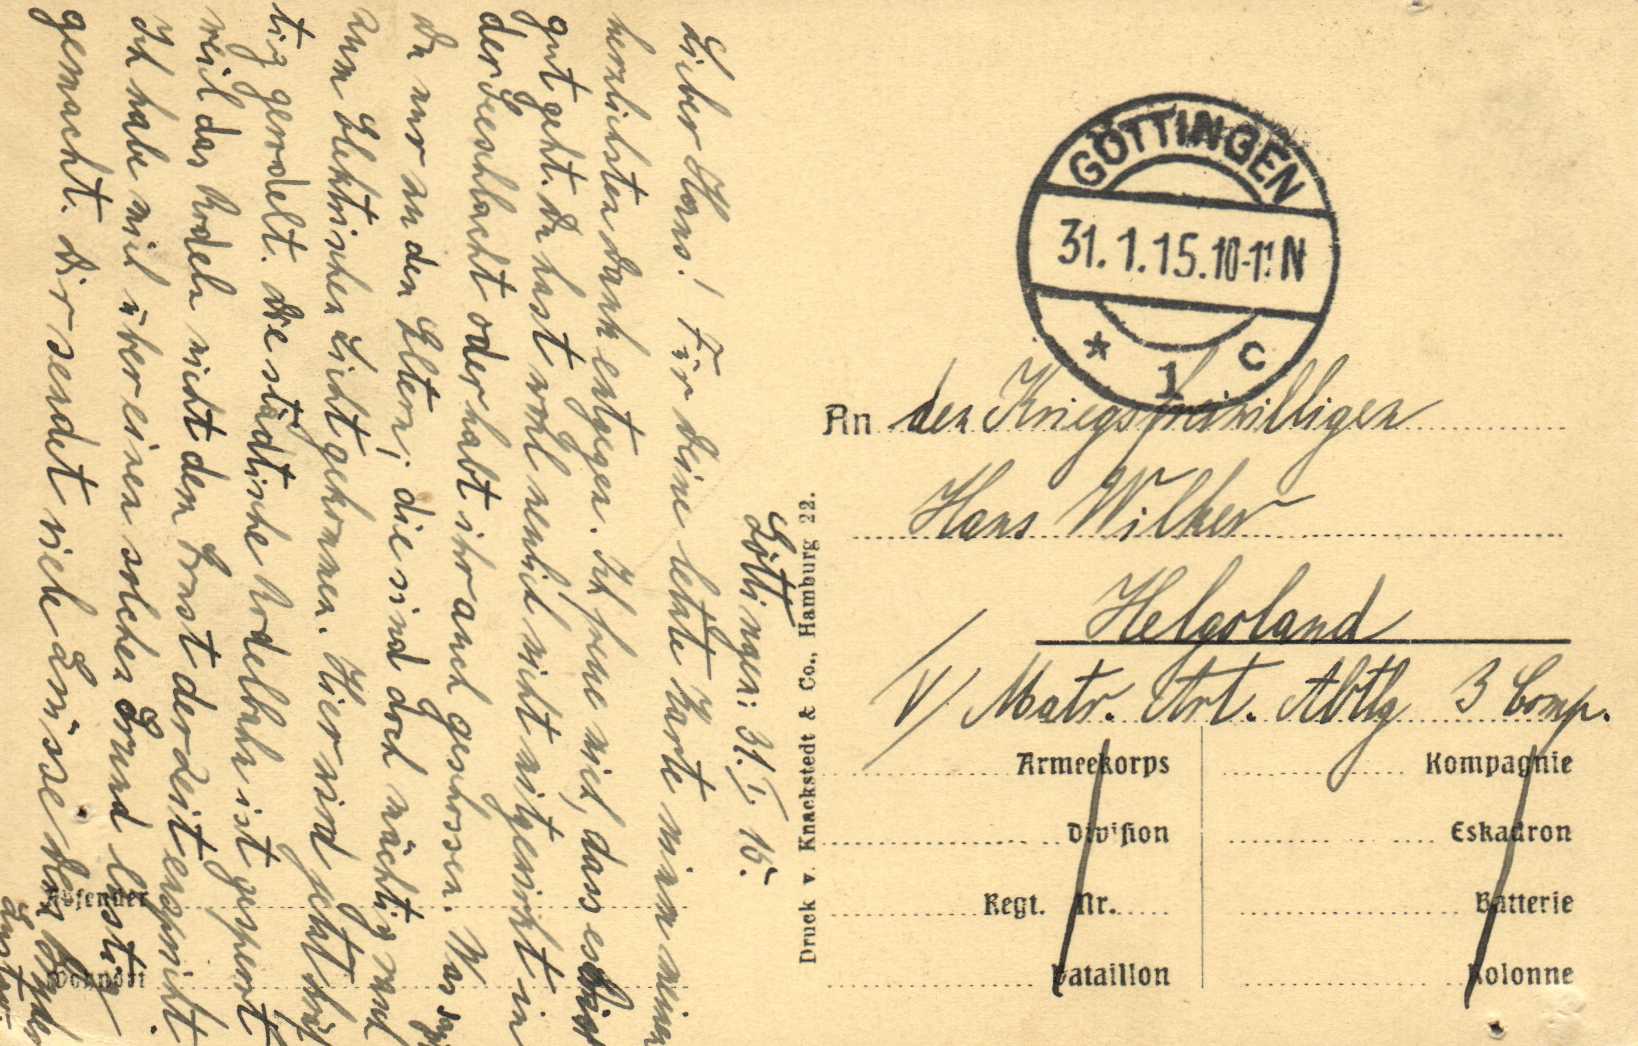 Göttingen: 31. I. 15.
Lieber Hans! Für deine letzte Karte nimm meinen
herzlichsten Dank entgegen. Ich freue mich, dass es Dir
gut geht. Du hast wohl neulich nicht mitgewirkt in
der Seeschlacht oder habt ihr auch geschossen. Was sagst
du nur zu den Eltern, die sind doch mächtig
zum Elektrischen Licht gekommen. Hier wird jetzt tüch-
tig gerodelt. Die städtische Rodelbahn ist gesperrt
weil das Rodeln nicht dem Ernst der Zeit entspricht.
Ich habe mich über einen solchen Grund lustig
gemacht. Dir sendet viele Grüsse dein Bruder
Gustav.
Absender
Wohnort
Druck v. Knackstedt & Co., Hamburg 22.
GÖTTINGEN
31.1.15.10-11 N
* 1 c
An den Kriegsfreiwilligen
Hans Wilker
Helgoland
V Matr. Art. Abtlg 3 Comp.
Armeekorps
Kompagnie
Division
Eskadron
Regt. Nr.
Batterie
Bataillon
Kolonne